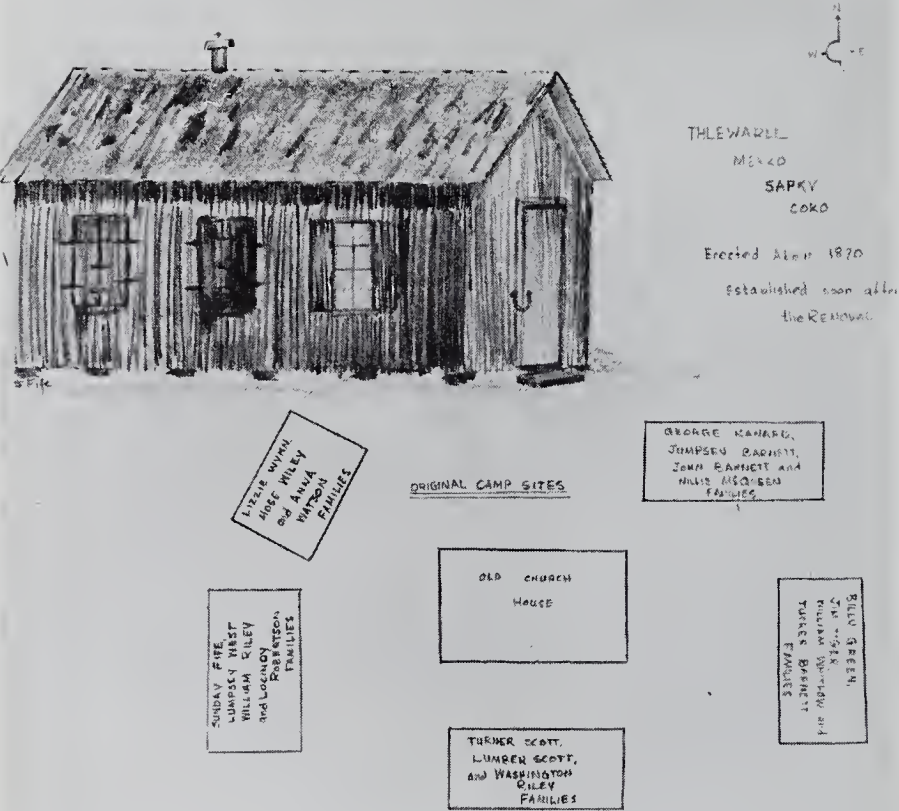 N
W E
THLEWARLE
MEKKO
SAPKV
COKO
Erected About 1870
Established soon after
the REMOVAL
S Fife
LIZZIE WYNN,
MOSE WILEY
and ANNA
WATSON
FAMILIES
ORIGINAL CAMP SITES
GEORGE KANARD,
JUMPSEY BARNETT,
JOHN BARNETT and
MILLIE McQUEEN
FAMILIES
OLD CHURCH
HOUSE
SUNDAY FIFE,
LUMPSEY WEST
WILLIAM RILEY
and LOCINDY
ROBERTSON
FAMILIES
BILLY GREEN,
JIM TIGER,
WILLIAM and
TUCKER BARNETT
FAMILIES
TURNER SCOTT,
LUMBER SCOTT,
and WASHINGTON
RILEY
FAMILIES